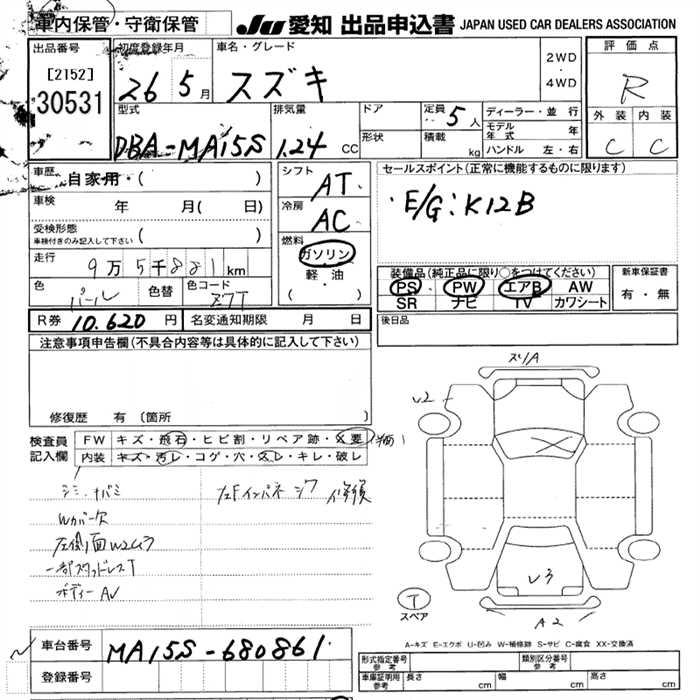 車内保管・守衛保管 JU 愛知 出品申込書 JAPAN USED CAR DEALERS ASSOCIATION
出品番号 初度登録年月 車名・グレード 2WD・4WD 評価点
[2152] 30531 26 5月 スズキ R
型式 排気量 ドア 定員 5人 ディーラー・並行 外装 内装
DBA-MA15S 1.24 cc 形状 積載 kg モデル年式 年 ハンドル 左・右 C C
車歴 自家用・( ) シフト AT セールスポイント(正常に機能するものに限ります)
車検 年 月( 日) 冷房 AC ・E/G:K12B
受検形態 車検付きのみ記入して下さい ( )
燃料 ガソリン 軽・油 (・ )
走行 9万5千881km 装備品(純正品に限り○をつけてください) 新車保証書
色 パール 色替 色コード Z7T PS PW エアB AW 有・無
SR ナビ TV カワシート
R券 10.620円 名変通知期限 月 日 後日品
注意事項申告欄(不具合内容等は具体的に記入して下さい)
修復歴 有 (箇所 )
検査員記入欄 FW キズ・飛石・ヒビ割・リペア跡・X要
内装 キズ・汚レ・コゲ・穴・スレ・キレ・破レ
シミ・ナバミ 左Fインパネ シワ 修損
Wカバー欠
左側面W2ムラ
一部スタッドレスT
ボディー AU
スリA
U2
U3
A2
T
スペア
A-キズ E-エクボ U-凹み W-補修跡 S-サビ C-腐食 XX-交換済
車台番号 MA15S-680861
登録番号
形式指定番号 参考 類別区分番号 参考
車庫証明用 参考 長さ cm 幅 cm 高さ cm